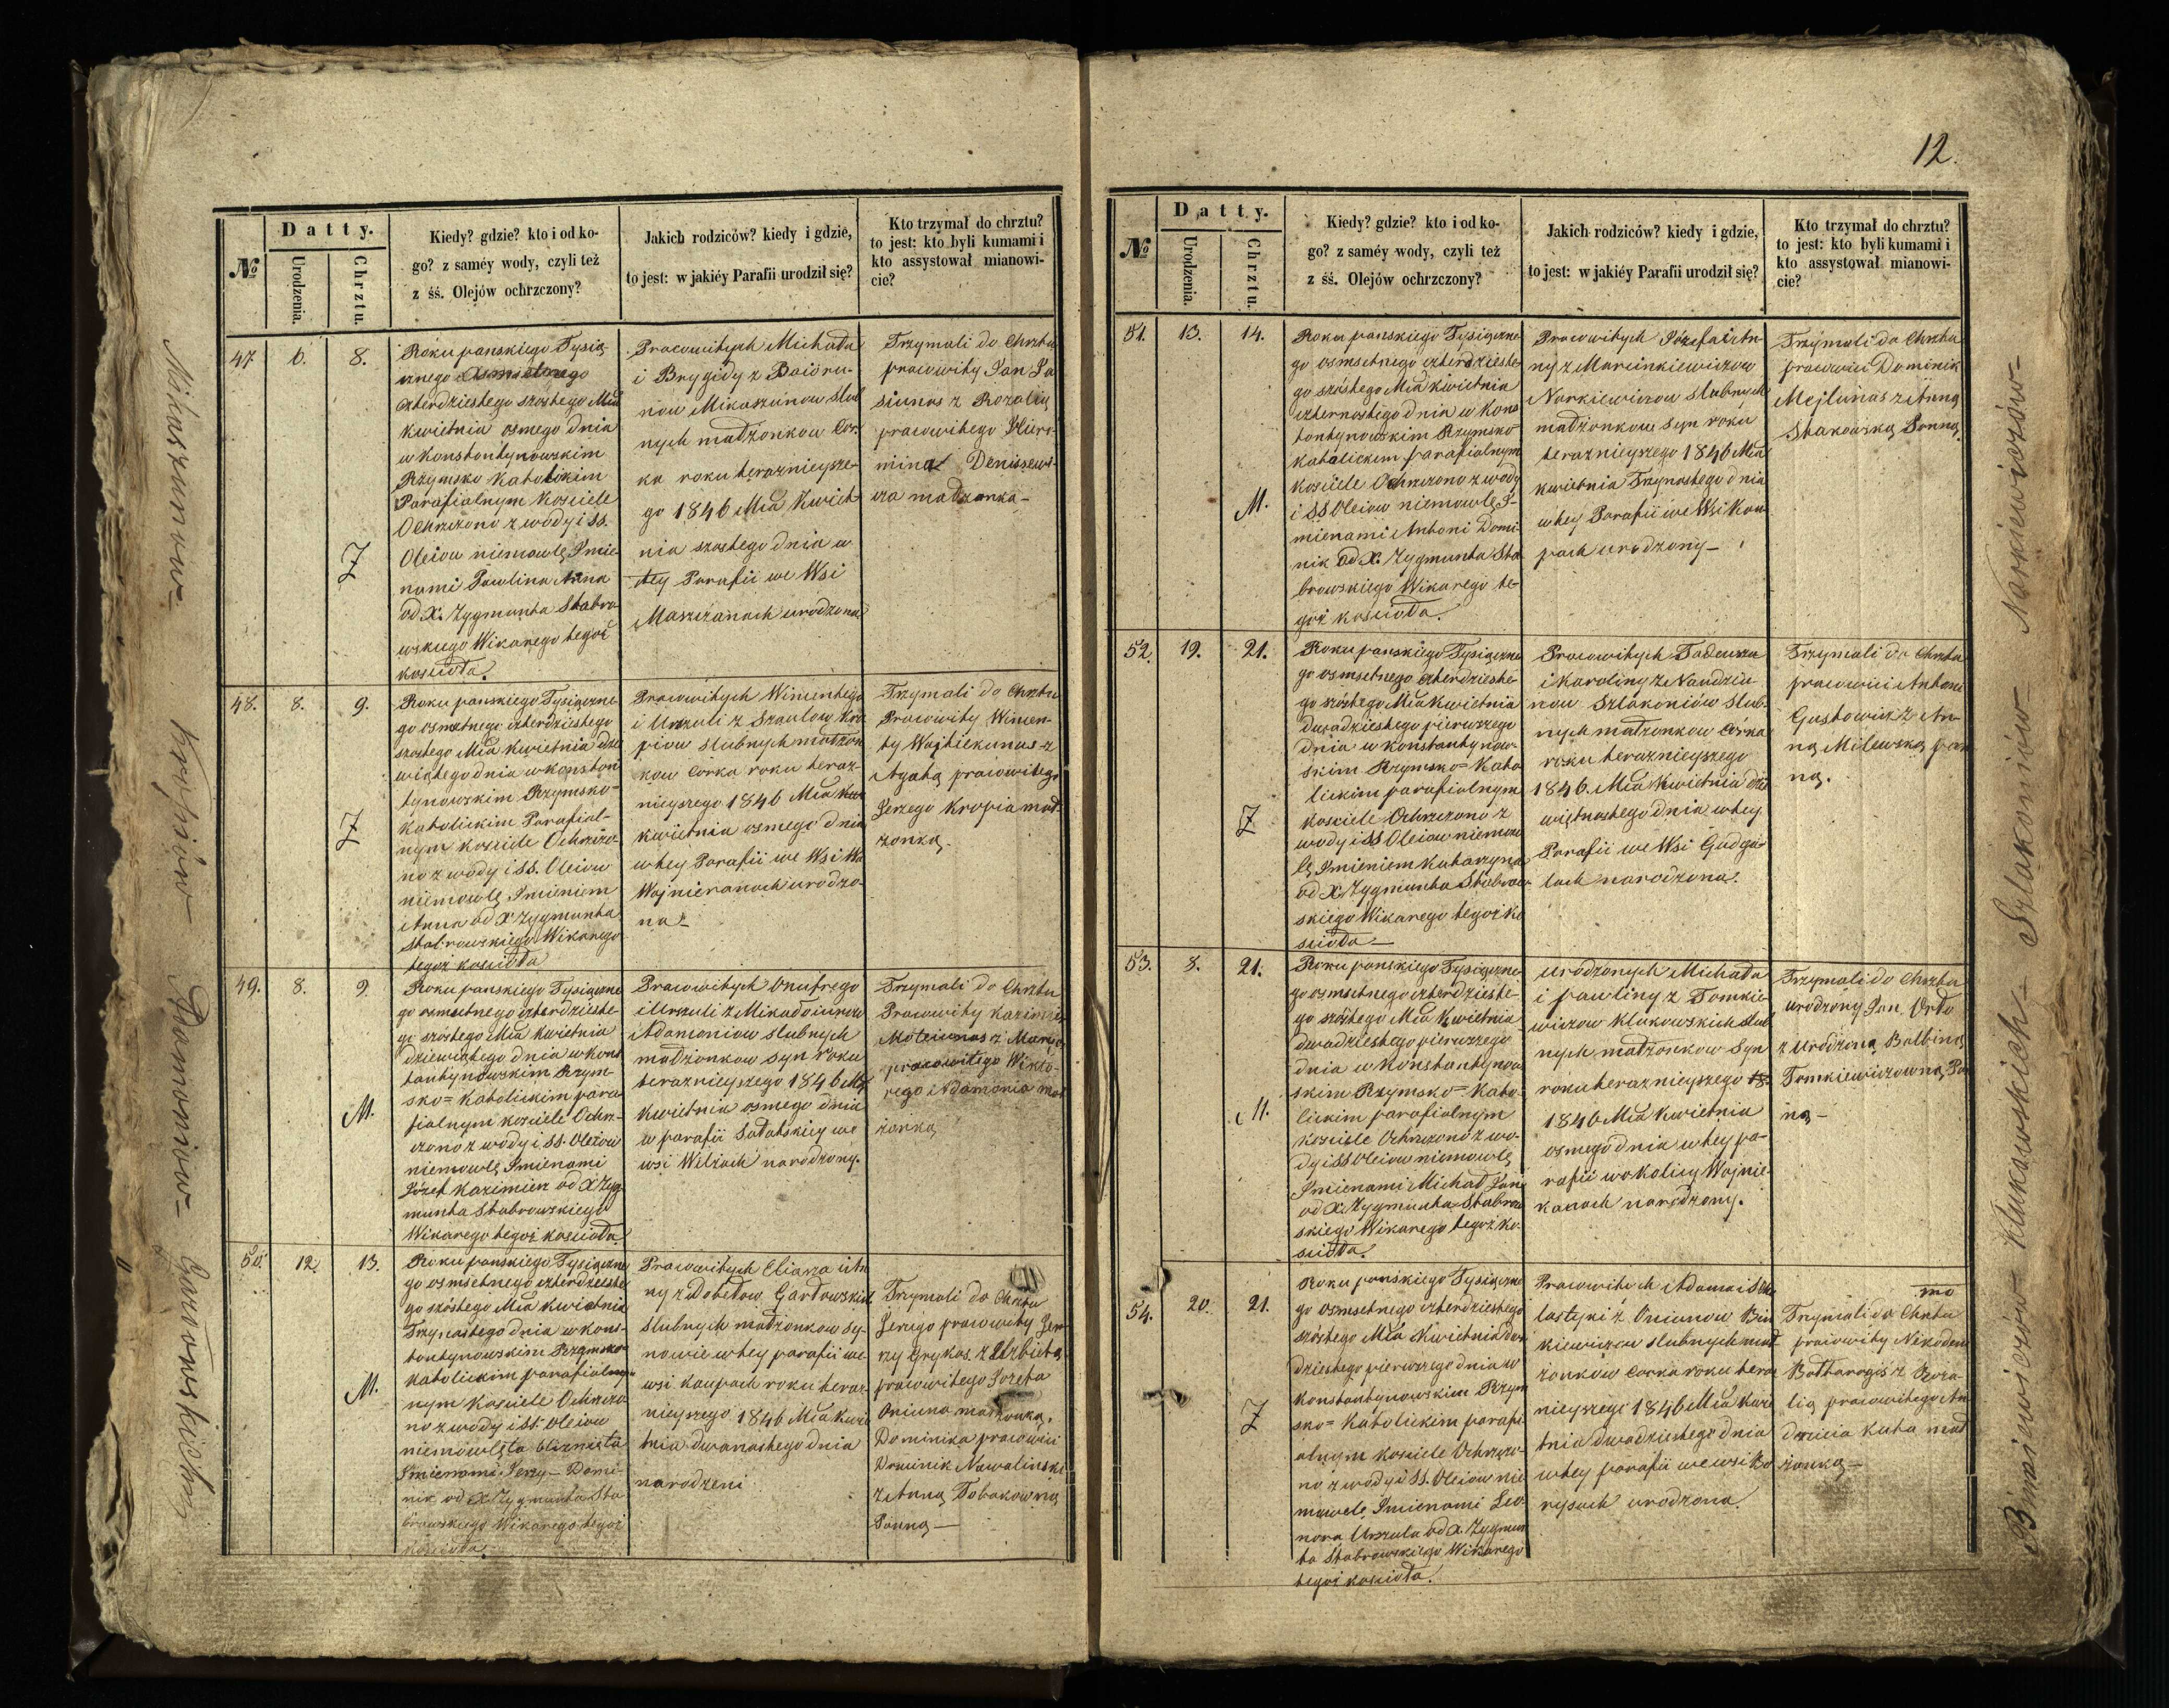 12.
Datty.
№
Urodzenia.
Chrztu.
Kiedy? gdzie? kto i od ko-
go? z saméy wody, czyli też
z śś. Olejów ochrzczony?
Jakich rodziców? kiedy i gdzie,
to jest: w jakiéy Parafii urodził się?
Kto trzymał do chrztu?
to jest: kto byli kumami i
kto assystował mianowi-
cie?
Mikaszunow
47 6. 8.
Ż
Roku panskiego Tysią
cznego osmsetnego
czterdziestego szostego Mca
Kwietnia osmego dnia
w Konstantynowskim
Rzymsko Katolickim
Parafialnym Kosciele
Ochrzczono z wody i SS.
Oleiow niemowlę Imie-
nami Pawlina Anna
od X. Zygmunta Stabro
wskiego Wikarego tegoż
koscioła.
Pracowitych Michała
i Brygidy z
now Mikaszunow Slub
nych małżonkow Cor.
ka roku teraznieysze-
go 1846 Mca Kwiet
nia szostego dnia w
tey Parafii we Wsi
Maszczanach urodzona
Trzymali do Chrztu
pracowity Jan Ja
siunas z Rozalią
pracowitego Hiero-
nima Deniszewi-
cza małżonka -
Kropiow
48. 8. 9.
Ż
Roku panskiego Tysiączne-
go osmsetnego czterdziestego
szostego Mca Kwietnia dzie
wiątego dnia w Konstan
tynowskim Rzymsko-
Katolickim Parafial-
nym kosciele Ochrzczo-
no z wody i SS. Oleiow
niemowlę Imieniem
Anna od X Zygmunta
Stabrowskiego Wikarego
tegoż koscioła
Pracowitych Wincentego
i Urszuli z Szaulow Kro
piow slubnych małżon
kow Corka roku teraz-
nieyszego 1846 Mca Kw
kwietnia osmego dnia
w tey Parafii we Wsi Wo
Wojnieranach urodzo-
na -
Trzymali do Chrztu
Pracowity Wincen-
ty Wajtiekunas z
Agatą pracowitego
Jerzego Kropia mał
żonką.
Adamoniow
49. 8. 9.
M.
Roku panskiego Tysiączne
go osmsetnego czterdzieste-
go szóstego Mca Kwietnia
dziewiątego dnia w Kons
tantynowskim Rzym-
sko= Katolickim para
fialnym kosciele Ochrz-
czono z wody i SS. Oleiow
niemowlę Imienami
Józef Kazimierz od X Zyg
munta Stabrowskiego
Wikarego tegoż koscioła
Pracowitych Onufrego
i Urszuli z Mikałoiunow
Adamoniow slubnych
małżonkow syn roku
teraznieyszego 1846 Mca
Kwietnia osmego dnia
w parafii Sałatskiey we
wsi Wilżach narodzony.
Trzymali do Chrztu
Pracowity Kazimierz
Moteiunas z Maryą
pracowitego Wikto-
rego Adamonia mał
żonką
Garłowskich
50. 12. 13.
M.
Roku panskiego Tysiączne
go osmsetnego czterdzieste
go szóstego Mca Kwietnia
Trzynastego dnia w Kons-
tantynowskim Rzymsko-
Katolickim parafialny
nym kosciele Ochrzczo
no z wody i SS. Oleiow
niemowlęta bliznięta
Imienami Jerzy - Domi-
nik od X Zygmunta Sta
browskiego Wikarego tegoż
kosciola.
Pracowitych Eliasza i An
ny z Dobetow Garłowskich
slubnych małżonkow Sy-
nowie w tey parafii we
wsi Kaupach roku teraz-
nieyszego 1846 Mca Kwie
tnia dwanastego dnia
narodzeni
Trzymali do Chrztu
Jerzego pracowity Jer-
zy Grykas z Elzbietą
pracowitego Jozefa
Oniuna małżonką,
Dominika pracowici
Dominik Nawalinski
z Anną Tobakowną
Panną -
Datty.
№
Urodzenia.
Chrztu.
Kiedy? gdzie? kto i od ko-
go? z saméy wody, czyli też
z śś. Olejów ochrzczony?
Jakich rodziców? kiedy i gdzie,
to jest: w jakiéy Parafii urodził się?
Kto trzymał do chrztu?
to jest: kto byli kumami i
kto assystował mianowi-
cie?
Narkiewiczów-
51. 13. 14.
M.
Roku panskiego Tysiączne
go osmsetnego czterdzieste-
go szóstego Mca Kwietnia
czternastego dnia w Kons
tantynowskim Rzymsko
Katolickim parafialnym
kościele Ochrzczono z wody
i SS Oleiow niemowlę I-
mienami Antoni Domi-
nik od X. Zygmunta Sta
browskiego Wikarego te-
goż kosciola.
Pracowitych Józefa i An-
ny z Marcinkiewiczow
Narkiewiczow slubnych
małżonkow syn roku
teraznieyszego 1846 Mca
kwietnia Trzynastego dnia
w tey Parafii we Wsi Kau
pach urodzony -
Trzymali do Chrztu
pracowici Dominik
Mejlunas z Anną
Stakowską Panną.
Szlakoniów
52. 19. 21.
Ż
Roku panskiego Tysiączne
go osmsetnego czterdzieste-
go szóstego Mca Kwietnia
dwudziestego pierwszego
dnia w Konstantynow-
skim Rzymsko= Kato
lickim parafialnym
kosciele Ochrzczono z
wody i SS Oleiow niemow
lę Imieniem Katarzyna
od X. Zygmunta Stabrow
skiego Wikarego tegoż ko
scioła -
Pracowitych Tadeusza
i Karoliny z Naudziu
now Szlakoniów slub-
nych małżonkow Córka
roku teraznieyszego
1846. Mca Kwietnia dzie
więtnastego dnia w tey
Parafii we Wsi Gudga
lach narodzona.
Trzymali do Chrztu
pracowici Antoni
Gustowicz z An-
ną Milewską pan
ną.
Klukowskich
53. 8. 21.
M.
Roku panskiego Tysiączne-
go osmsetnego czterdzieste-
go szóstego Mca Kwietnia
dwadziestego pierwszego
dnia w Konstantynow
skim Rzymsko= Kato-
lickim parafialnym
kosciele Ochrzczono z wo-
dy i SS Oleiow niemowlę
Imienami Michał Jan
od X. Zygmunta Stabrow
skiego Wikarego tegoż ko-
scioła.
Urodzonych Michała
i Pawliny z Tomkie-
wiczow Klukowskich slub
nych małżonkow Syn
roku teraznieyszego 18.
1846 Mca Kwietnia
osmego dnia w tey pa-
rafii w okolicy Wojnie-
kanach narodzony.
Trzymali do Chrztu
urodzony Jan Orło
z Urodzoną Balbiną
Tomkiewiczowną Pan
ną -
Binkiewiczów
54. 20. 21.
Ż
Roku panskiego Tysiączne
go osmsetnego czterdziestego
szóstego Mca Kwietnia dwu
dziestego pierwszego dnia w
Konstantynowskim Rzym
sko= Katolickim parafi
alnym kosciele Ochrzczo-
no z wody i SS. Oleiow nie
mowlę Imienami Leo-
nora Urszula od X. Zygmun
ta Stabrowskiego Wikarego
tegoż kosciola.
Pracowitych Adama i Sko
lastyki z Oniunow Bin
kiewiczow slubnych mał
żonkow Corka roku teraz
nieyszego 1846 Mca Kwie
tnia dwudziestego dnia
w tey parafii we wsi Bo
rysach urodzona.
Trzymali do Chrztu
pracowity Nikodem
z Roza-
lią pracowitego An
drzeia Kuta mał
żonką -